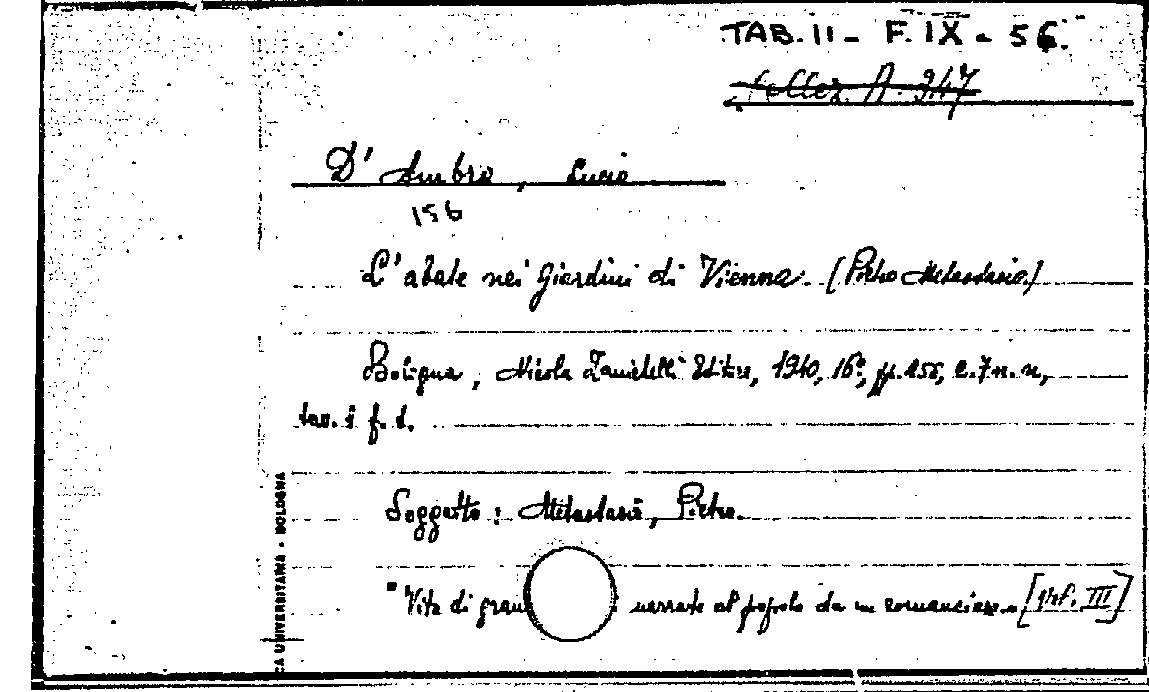 TAB. II - F. IX - 56.
Collez. A. 947
D'Ambra, Lucio
156
L'abate nei giardini di Vienna. (Pietro Metastasio)
Bologna, Nicola Zanichelli Editore, 1940, 16°, pp. 255, c. 7 n. n,
tav. i f. t.
Soggetto: Metastasio, Pietro.
"Vite di gran narrate al popolo da un romanziere"
CA UNIVERSITARIA - BOLOGNA